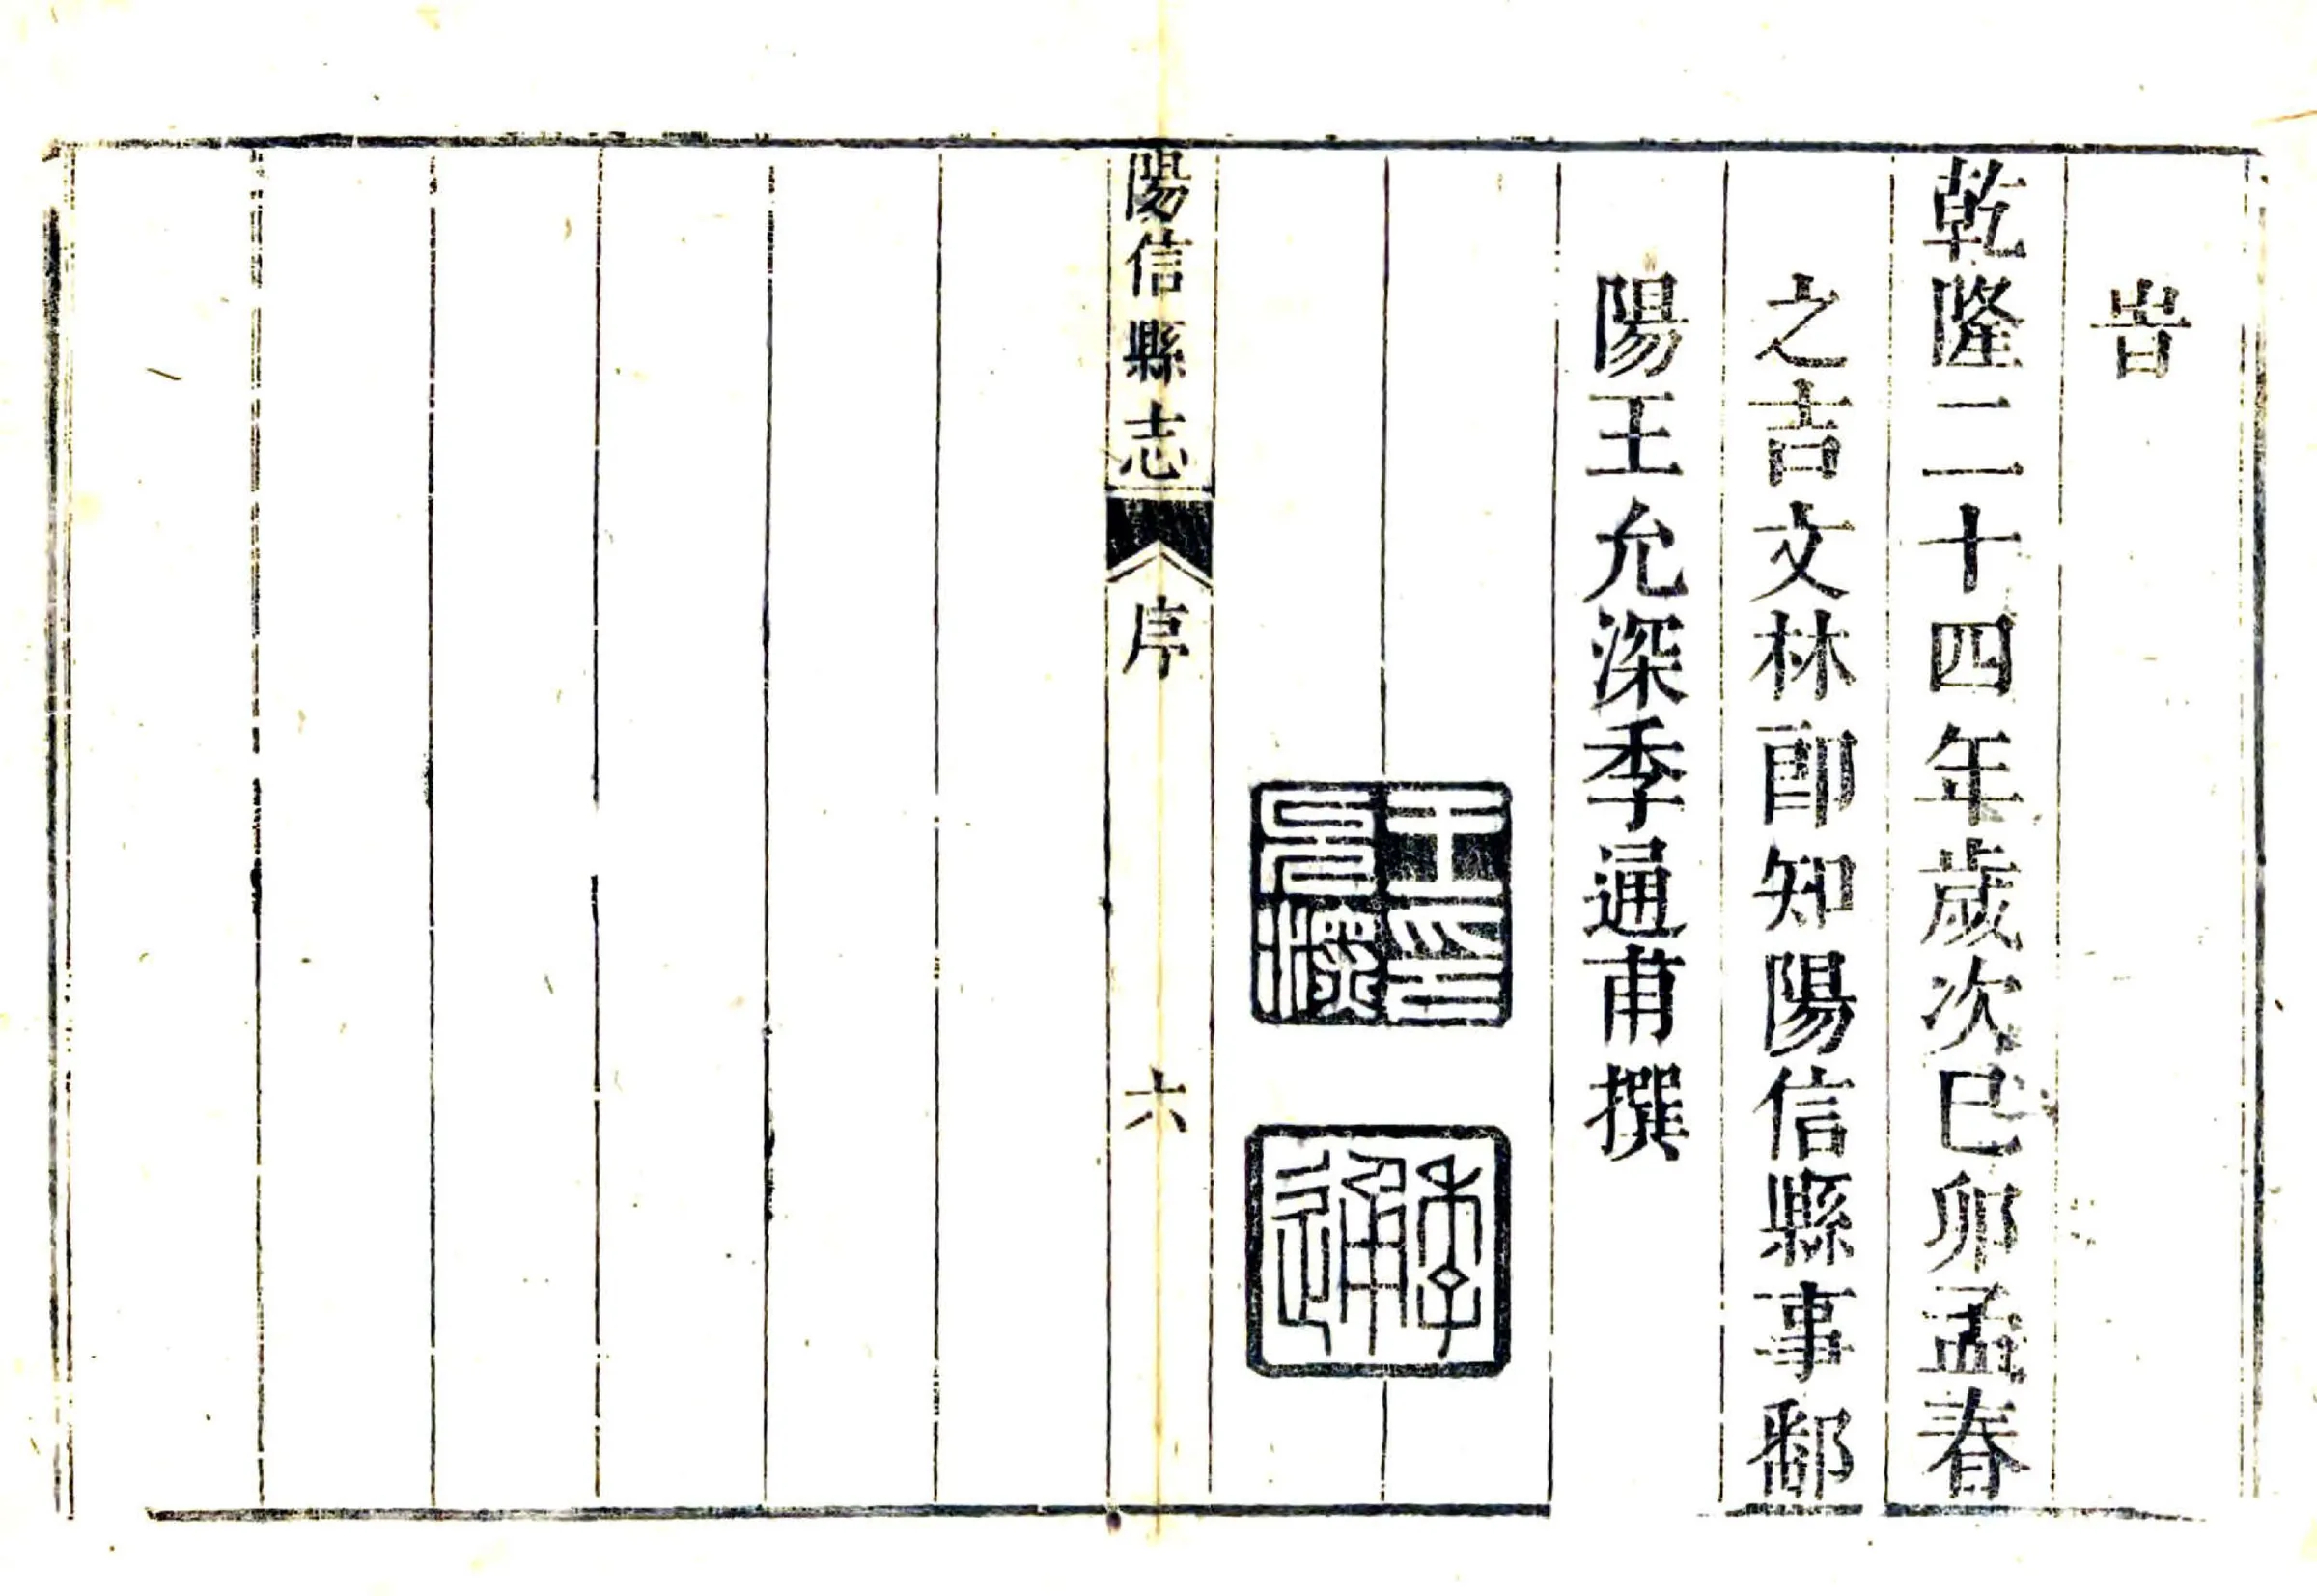 旹
乾隆二十四年歲次巳卯孟春
之吉文林郎知陽信縣事鄱
陽王允深季通甫撰
王印
允深
季通
陽信縣志 序 六